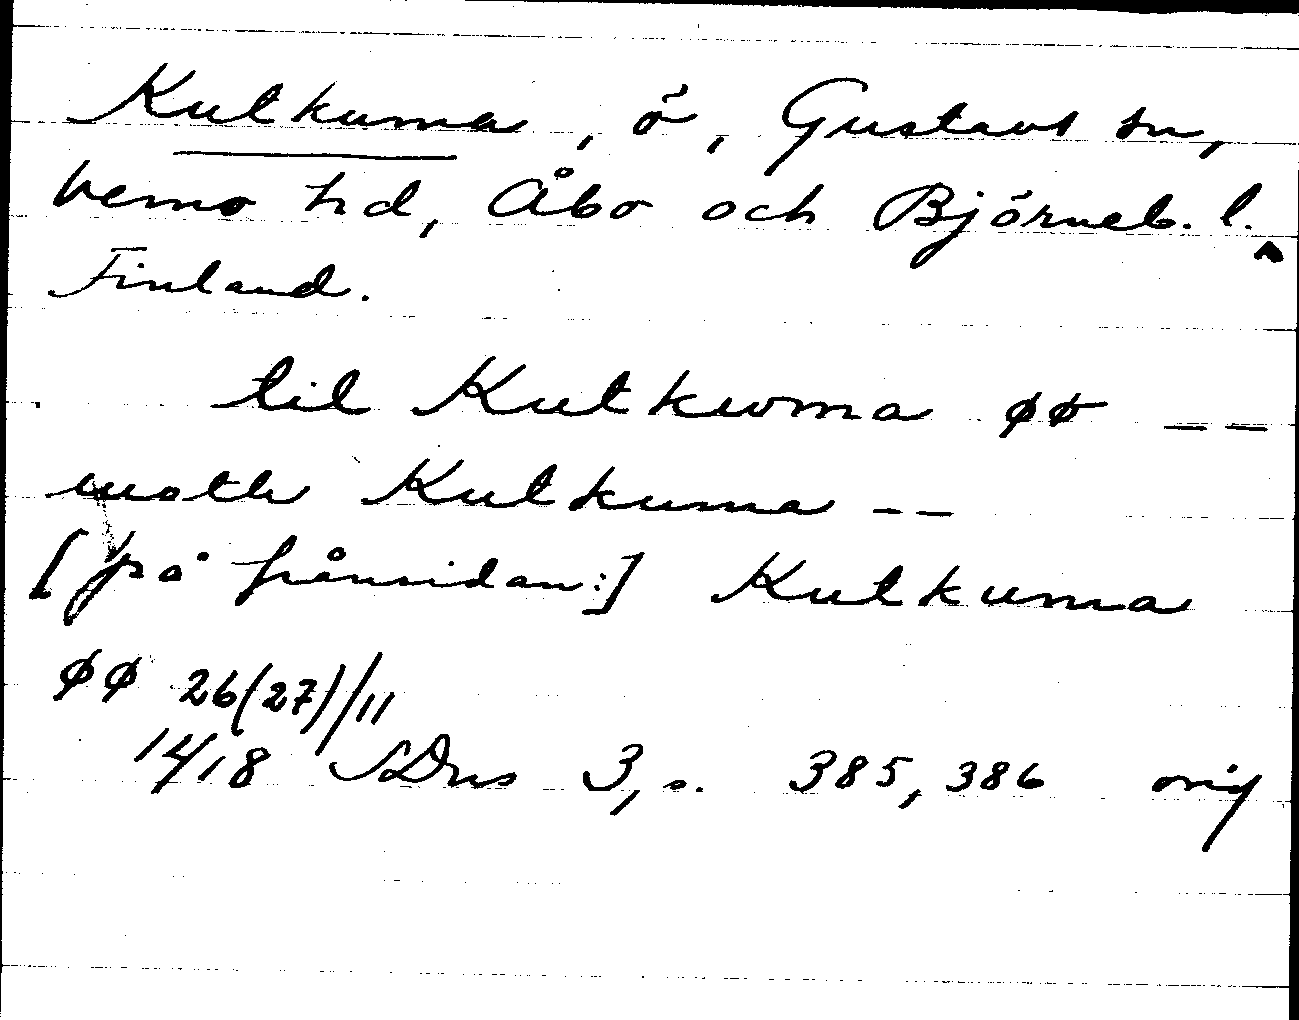 Kutkuma, ö, Gustavs sn,
Vemo hd, Åbo och Björneb. l.
Finland.
til Kutkuoma øø --
moth Kutkuma --
[på frånsidan:] Kutkuma
øø 26(27)/11
14/18 SDns 3, s. 385, 386 orig